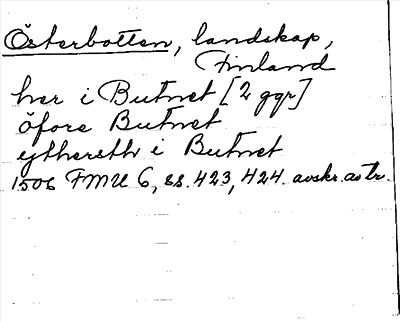 Österbotten, landskap,
Finland
her i Butnet [2 ggr]
öfore Butnet
ythersth i Butnet
1506 FMU 6, ss. 423, 424. avskr. av tr.